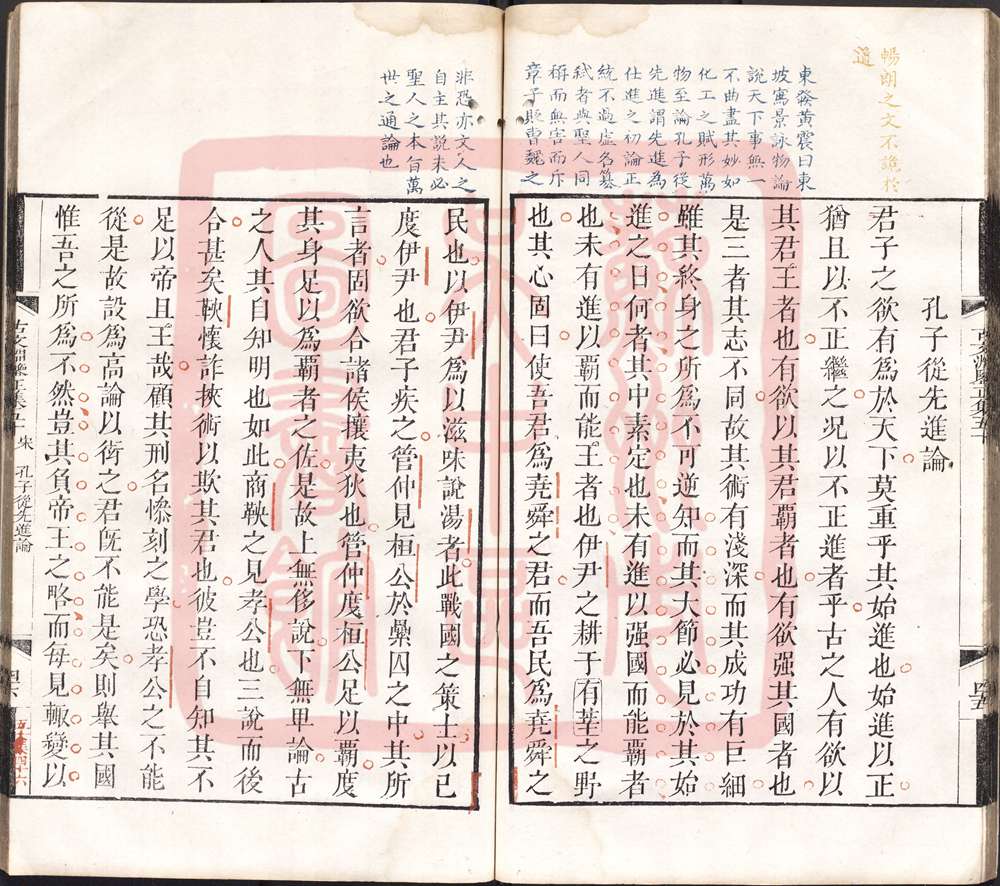 暢朗之文不詭於
道
東發黃震曰東
坡寓景詠物論
說天下事無一
不曲盡其妙如
化工之賦形萬
物至論孔子從
先進謂先進為
仕進之初論正
統不過虛名篡
弒者與聖人同
稱而無害而斥
章子貶曹魏之
孔子從先進論
君子之欲有為於天下莫重乎其始進也始進以正
猶且以不正繼之況以不正進者乎古之人有欲以
其君王者也有欲以其君霸者也有欲强其國者也
是三者其志不同故其術有淺深而其成功有巨細
雖其終身之所為不可逆知而其大節必見於其始
進之日何者其中素定也未有進以强國而能霸者
也未有進以霸而能王者也伊尹之耕于有莘之野
也其心固曰使吾君為堯舜之君而吾民為堯舜之
四五
非恐亦文人之
自主其說未必
聖人之本旨萬
世之通論也
民也以伊尹為以滋味說湯者此戰國之策士以已
度伊尹也君子疾之管仲見桓公於纍囚之中其所
言者固欲合諸侯攘夷狄也管仲度桓公足以霸度
其身足以為霸者之佐是故上無侈說下無卑論古
之人其自知明也如此商鞅之見孝公也三說而後
合甚矣鞅懷詐挾術以欺其君也彼豈不自知其不
足以帝且王哉顧其刑名慘刻之學恐孝公之不能
從是故設為高論以衒之君旣不能是矣則舉其國
惟吾之所為不然豈其負帝王之略而每見輒變以
古文淵鑒正集五十 宋 孔子從先進論
四六